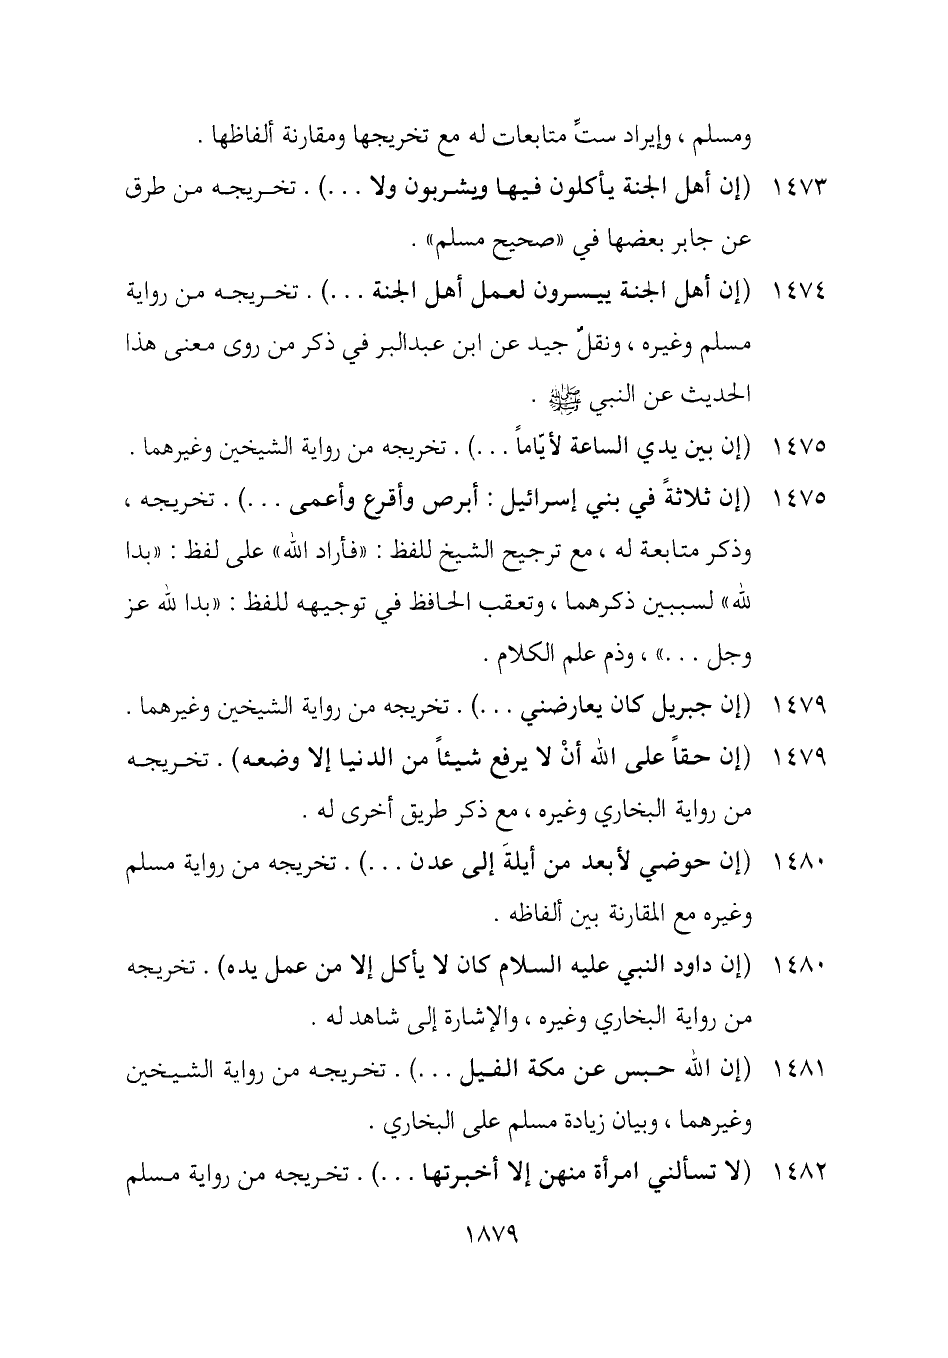 ومسلم ، وإيراد ستِّ متابعات له مع تخريجها ومقارنة ألفاظها .
١٤٧٣ (إن أهل الجنة يأكلون فيها ويشربون ولا . . .) . تخريجه من طرق
عن جابر بعضها في «صحيح مسلم» .
١٤٧٤ (إن أهل الجنة ييسرون لعمل أهل الجنة . . .) . تخريجه من رواية
مسلم وغيره ، ونقلٌ جيد عن ابن عبدالبر في ذكر من روى معنى هذا
الحديث عن النبي ﷺ .
١٤٧٥ (إن بين يدي الساعة لأيّاماً . . .) . تخريجه من رواية الشيخين وغيرهما .
١٤٧٥ (إن ثلاثةً في بني إسرائيل : أبرص وأقرع وأعمى . . .) . تخريجه ،
وذكر متابعة له ، مع ترجيح الشيخ للفظ : «فأراد الله» على لفظ : «بدا
لله» لسببين ذكرهما ، وتعقب الحافظ في توجيهه للفظ : «بدا لله عز
وجل . . .» ، وذم علم الكلام .
١٤٧٩ (إن جبريل كان يعارضني . . .) . تخريجه من رواية الشيخين وغيرهما .
١٤٧٩ (إن حقاً على الله أنْ لا يرفع شيئاً من الدنيا إلا وضعه) . تخريجه
من رواية البخاري وغيره ، مع ذكر طريق أخرى له .
١٤٨٠ (إن حوضي لأبعد من أيلةَ إلى عدن . . .) . تخريجه من رواية مسلم
وغيره مع المقارنة بين ألفاظه .
١٤٨٠ (إن داود النبي عليه السلام كان لا يأكل إلا من عمل يده) . تخريجه
من رواية البخاري وغيره ، والإشارة إلى شاهد له .
١٤٨١ (إن الله حبس عن مكة الفيل . . .) . تخريجه من رواية الشيخين
وغيرهما ، وبيان زيادة مسلم على البخاري .
١٤٨٢ (لا تسألني امرأة منهن إلا أخبرتها . . .) . تخريجه من رواية مسلم
١٨٧٩